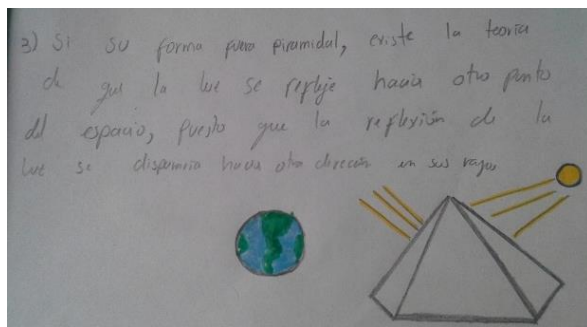 3) Si su forma fuera piramidal, existe la teoría
de que la luz se refleje hacia otro punto
del espacio, puesto que la reflexión de la
luz se dispararia hacia otra dirección en sus rayos